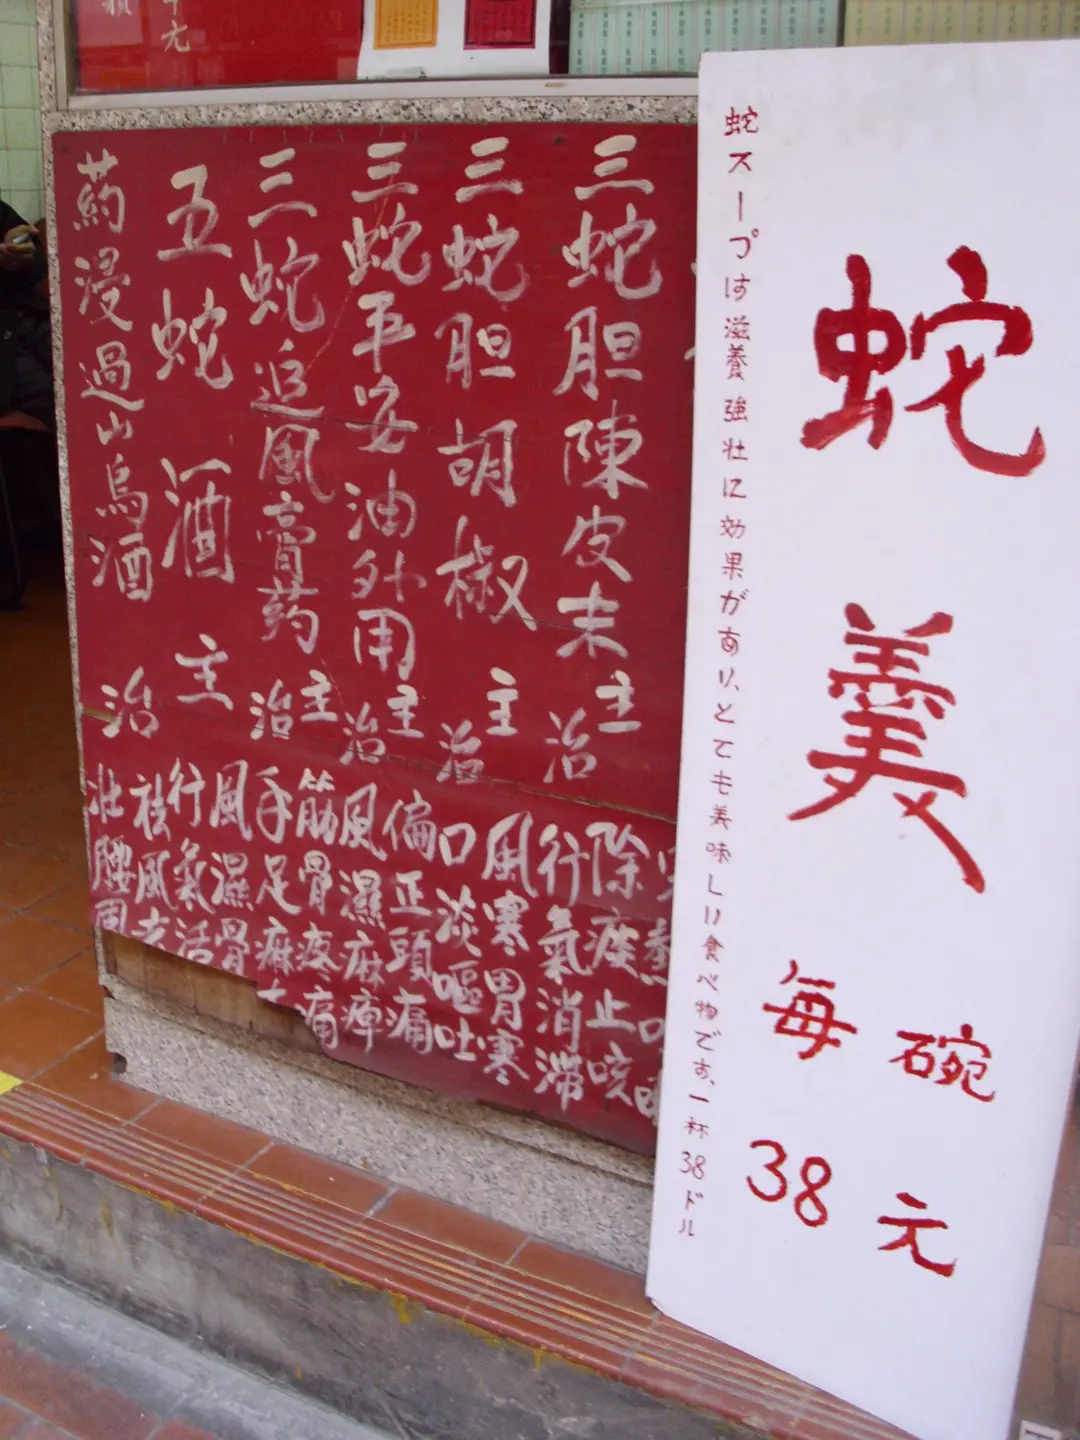 蛇羹
每碗
38元
蛇スープは滋養強壮に効果があり、とても美味しい食べ物です、一杯38ドル
三蛇胆陳皮末 主治
除痰止咳
行氣消滯
三蛇胆胡椒 主治
風寒胃寒
口淡嘔吐
三蛇平安油外用 主治
偏正頭痛
風濕麻痺
三蛇追風膏葯 主治
筋骨疼痛
手足麻
五蛇酒 主
風濕骨
行氣活
葯浸過山烏酒 治
祛風
壯腰